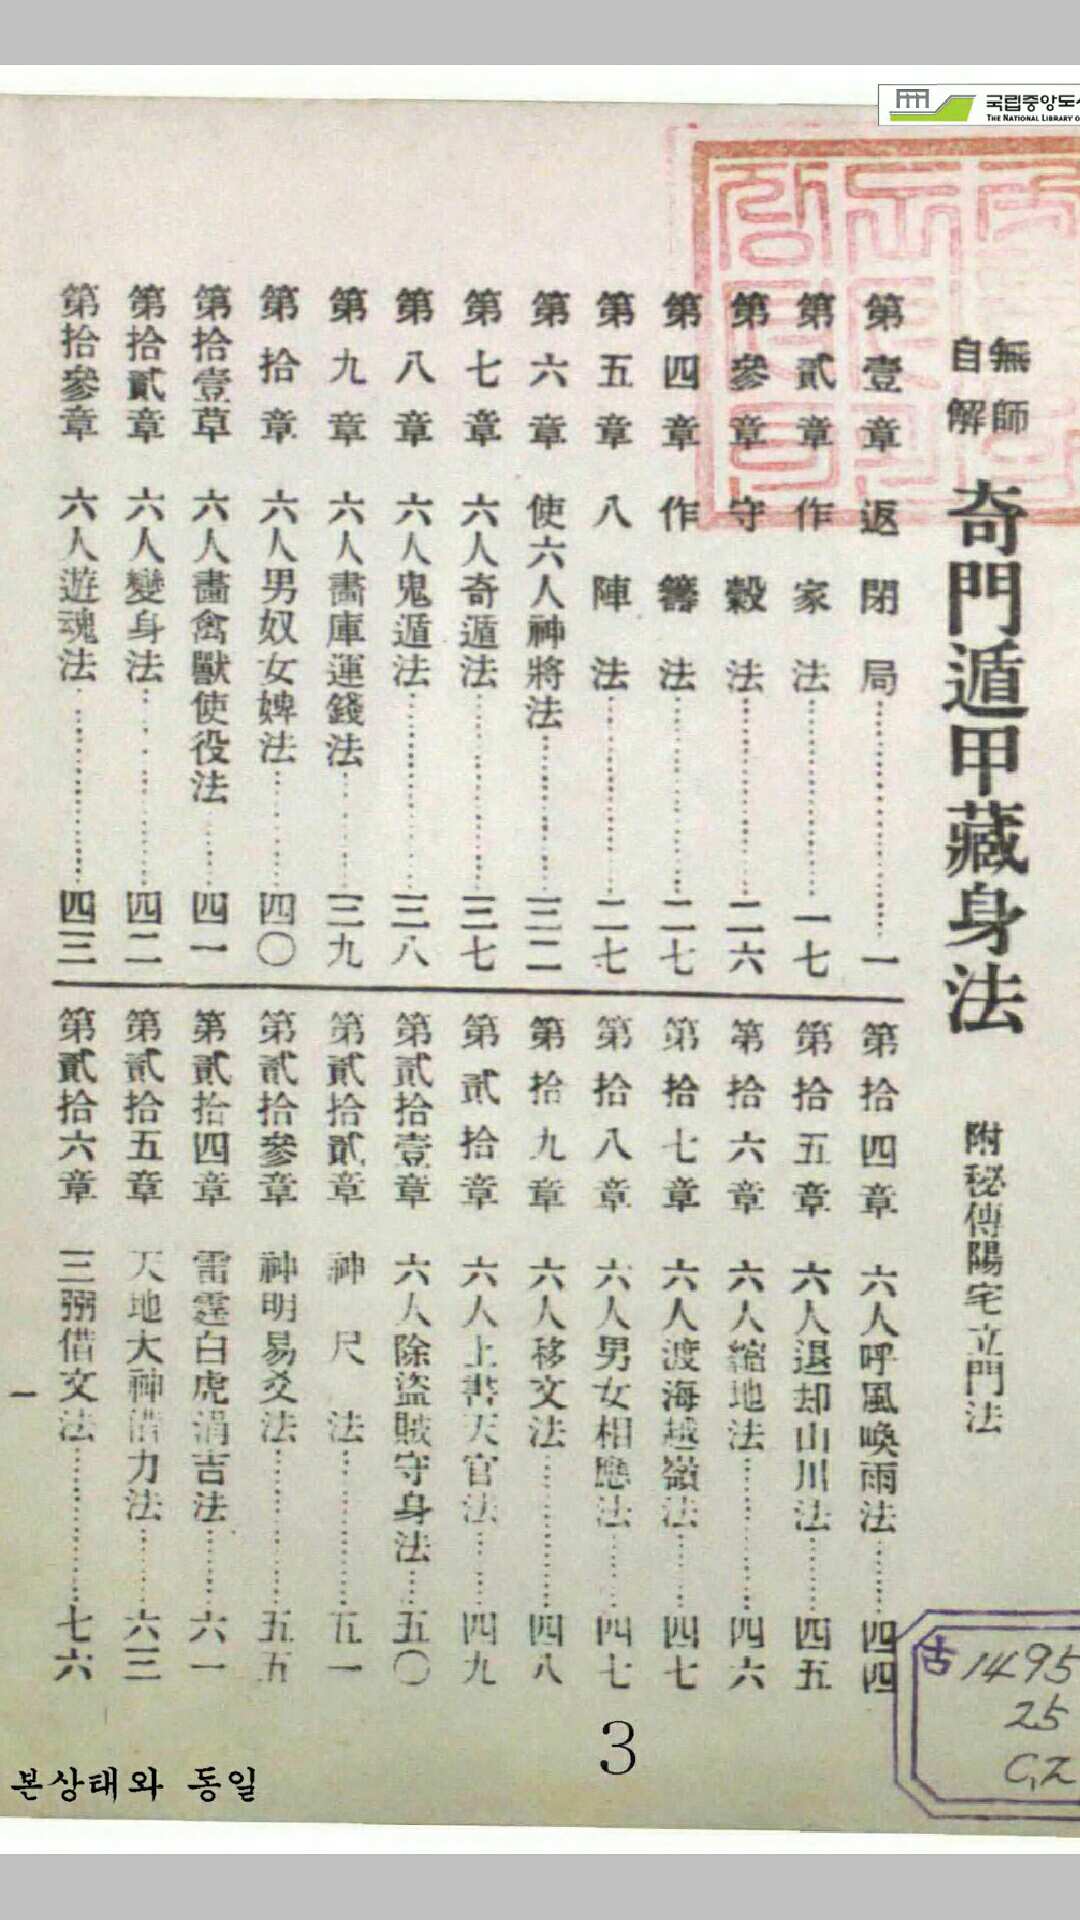 국립중앙도서
THE NATIONAL LIBRARY O
無師
自解
奇門遁甲藏身法
附秘傳陽宅立門法
第壹章 返閉局 一
第貳章 作家法 一七
第參章 守穀法 二六
第四章 作籌法 二七
第五章 八陣法 二七
第六章 使六人神將法 三二
第七章 六人奇遁法 三七
第八章 六人鬼遁法 三八
第九章 六人畵庫運錢法 三九
第拾章 六人男奴女婢法 四〇
第拾壹草 六人畵禽獸使役法 四一
第拾貳章 六人變身法 四二
第拾參章 六人遊魂法 四三
第拾四章 六人呼風喚雨法 四四
第拾五章 六人退却山川法 四五
第拾六章 六人縮地法 四六
第拾七章 六人渡海越嶺法 四七
第拾八章 六人男女相應法 四七
第拾九章 六人移文法 四八
第貳拾章 六人上書天官法 四九
第貳拾壹章 六人除盜賊守身法 五〇
第貳拾貳章 神尺法 五一
第貳拾參章 神明易爻法 五五
第貳拾四章 雷霆白虎涓吉法 六一
第貳拾五章 天地大神借力法 六三
第貳拾六章 三弼借文法 七六
一
古1495
25
3
본상태와 동일